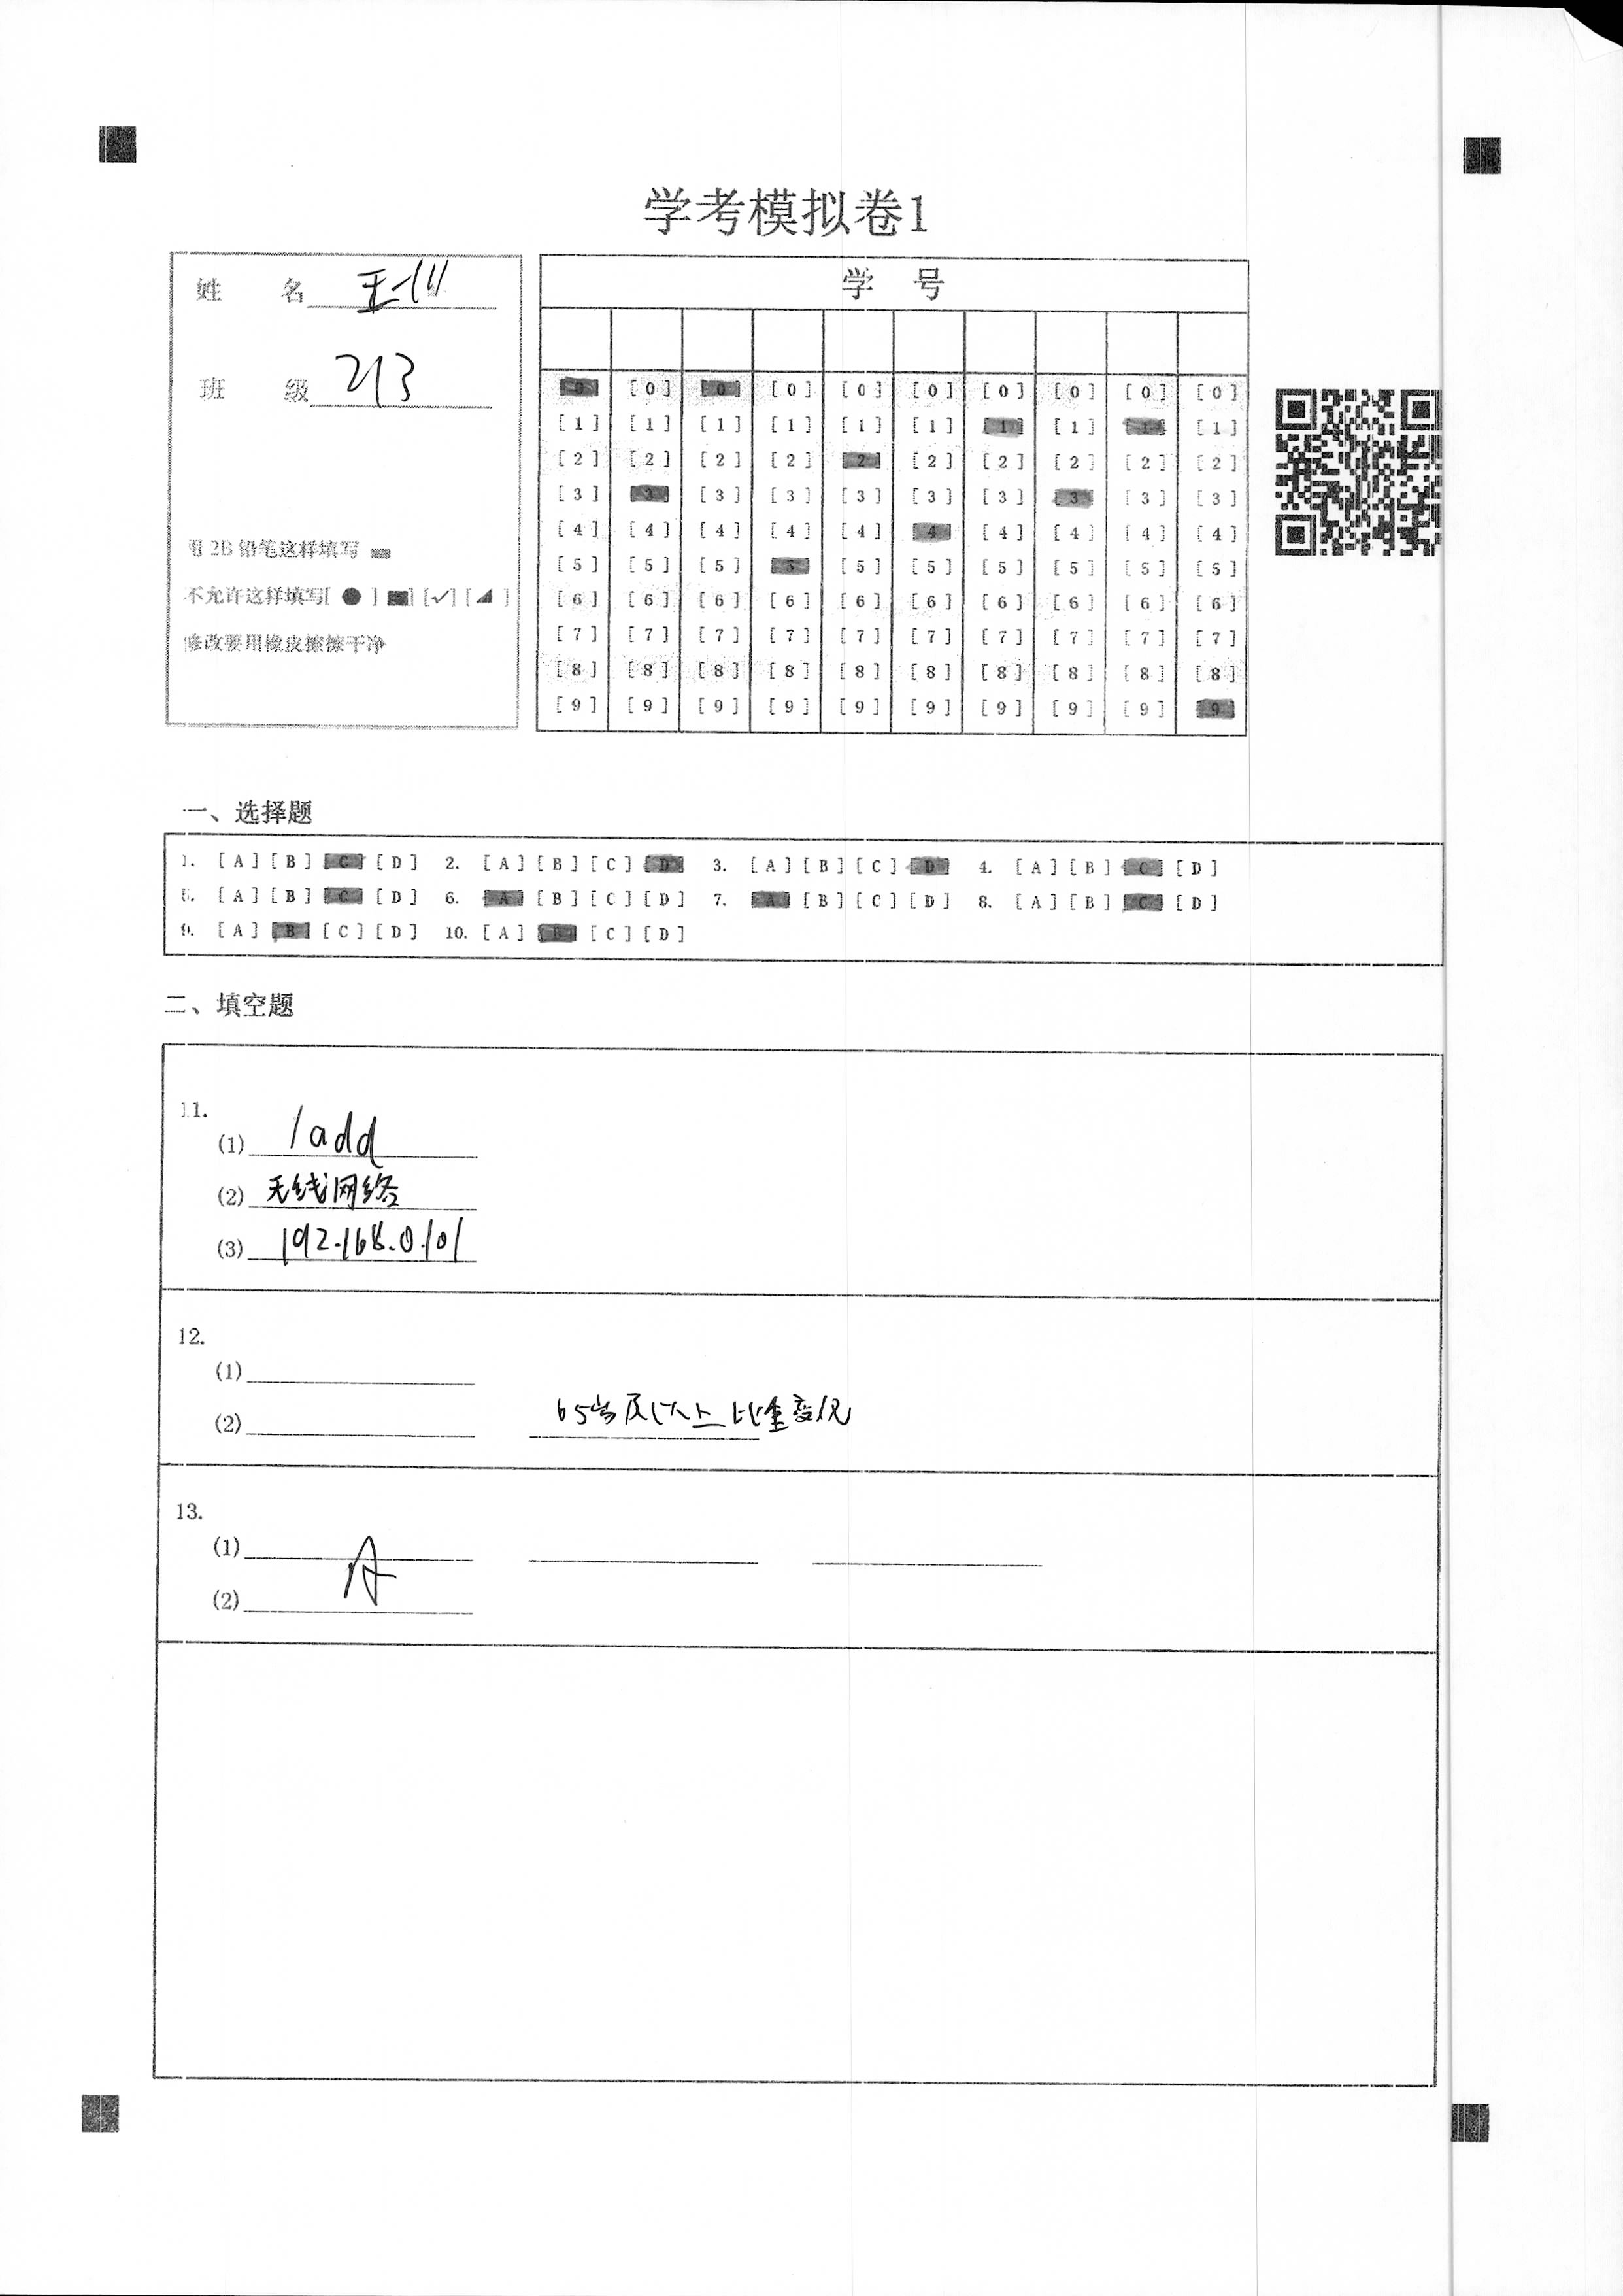 学考模拟卷1
姓 名
班 级 213
用 2B 铅笔这样填写
不允许这样填写[ ● ] [■] [✓] [◢]
修改要用橡皮擦擦干净
学 号
[0] [0] [0] [0] [0] [0] [0] [0] [0] [0]
[1] [1] [1] [1] [1] [1] [1] [1] [1] [1]
[2] [2] [2] [2] [2] [2] [2] [2] [2] [2]
[3] [3] [3] [3] [3] [3] [3] [3] [3] [3]
[4] [4] [4] [4] [4] [4] [4] [4] [4] [4]
[5] [5] [5] [5] [5] [5] [5] [5] [5] [5]
[6] [6] [6] [6] [6] [6] [6] [6] [6] [6]
[7] [7] [7] [7] [7] [7] [7] [7] [7] [7]
[8] [8] [8] [8] [8] [8] [8] [8] [8] [8]
[9] [9] [9] [9] [9] [9] [9] [9] [9] [9]
一、选择题
1. [A] [B] [C] [D] 2. [A] [B] [C] [D] 3. [A] [B] [C] [D] 4. [A] [B] [C] [D]
5. [A] [B] [C] [D] 6. [A] [B] [C] [D] 7. [A] [B] [C] [D] 8. [A] [B] [C] [D]
9. [A] [B] [C] [D] 10. [A] [B] [C] [D]
二、填空题
11.
(1) /add
(2) 无线网络
(3) 192.168.0.101
12.
(1)
(2) 65岁及以上比重变化
13.
(1)
(2) A